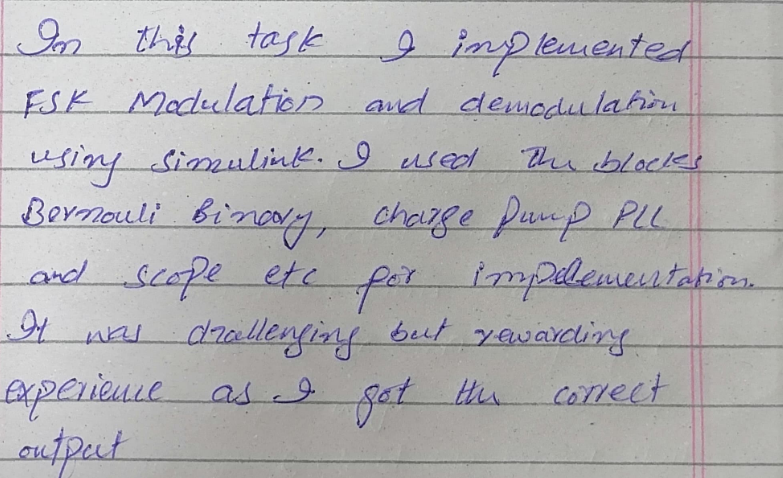 In this task I implemented
FSK Modulation and demodulation
using simulink. I used the blocks
Bernouli Binary, charge Pump PLL
and scope etc for implementation.
It was challenging but rewarding
experience as I got the correct
output